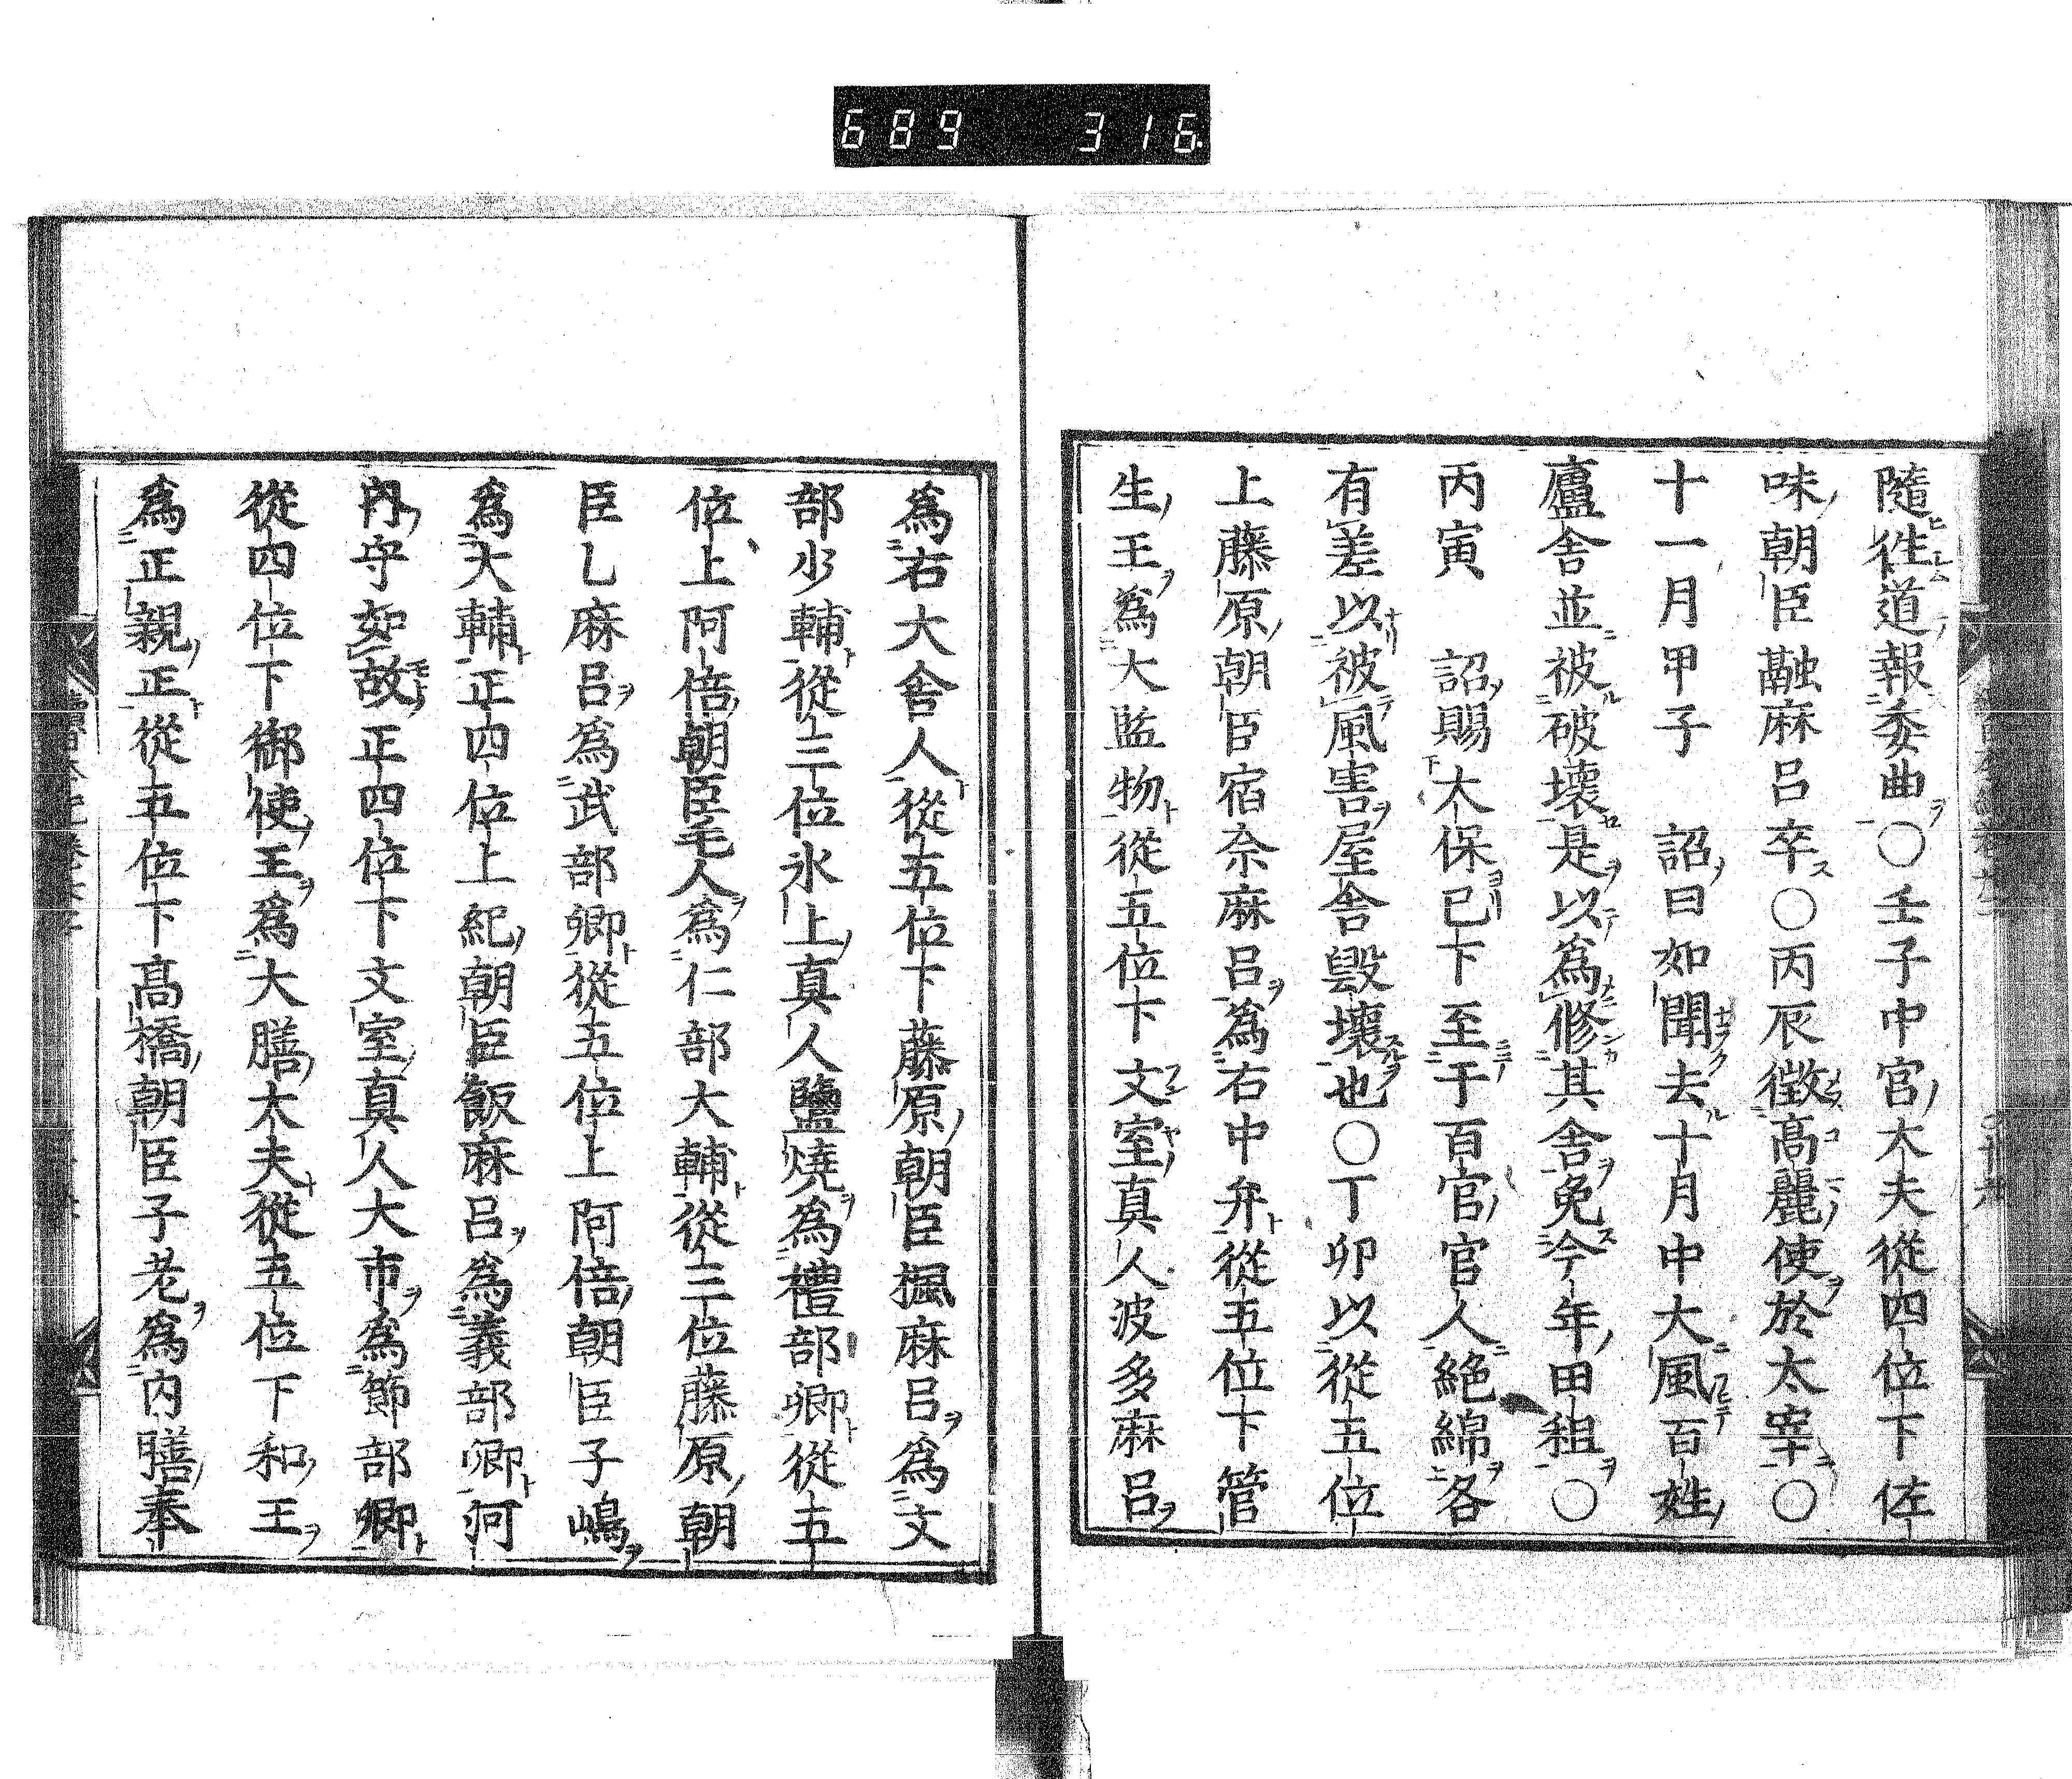 689 316
隨徃道報委曲○壬子中官大夫從四位下佐
味朝臣虪麻呂卒○丙辰徴髙麗使於太宰○
十一月甲子 詔曰如聞去十月中大風百姓
廬舍並被破壞是以為修其舍免今年田租○
丙寅 詔賜大保已下至于百官官人絶綿各
有差以被風害屋舍毀壞也○丁卯以從五位
上藤原朝臣宿奈麻呂為右中弁從五位下管
生王為大監物從五位下文室真人波多麻呂
為右大舍人從五位下藤原朝臣楓麻呂為文
部少輔從三位氷上真人鹽燒為禮部卿從五
位上阿倍朝臣毛人為仁部大輔從三位藤原朝
臣乙麻呂為武部卿從五位上阿倍朝臣子嶋
為大輔正四位上紀朝臣飯麻呂為義部卿河
内守如故正四位下文室真人大市為節部卿
從四位下御使王為大膳大夫從五位下和王
為正親正從五位下髙橋朝臣子老為内膳奉